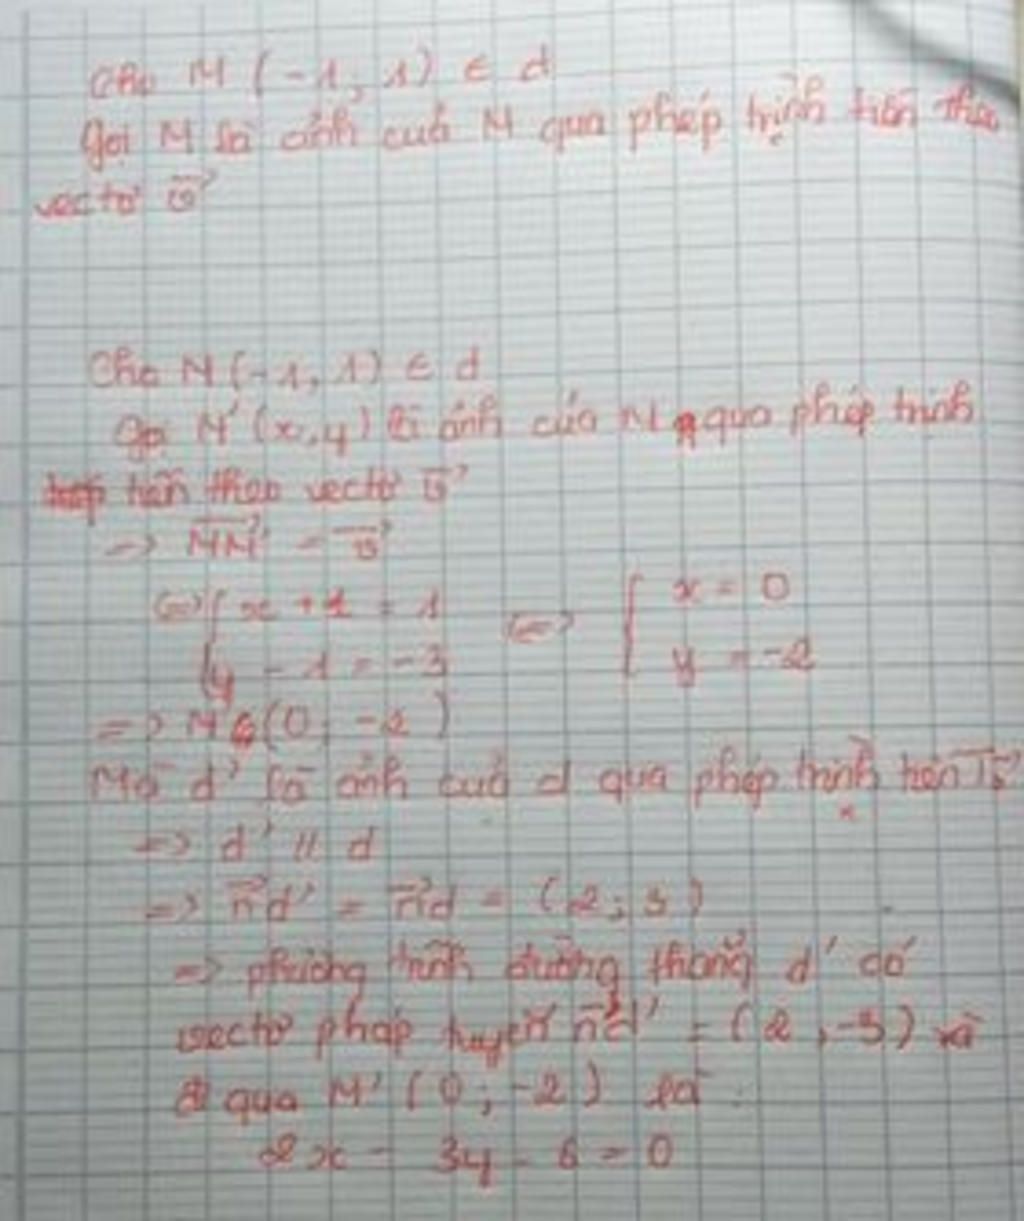 Cho M (-1, 1) ∈ d
Gọi M là ảnh cuả M qua phép trình tiến theo
vectơ v⃗
Cho M (-1, 1) ∈ d
Gọi M'(x,y) là ảnh của M qua phép trình
tiến theo vectơ v⃗
=> MM'⃗ = v⃗
<=> { x + 1 = 1 <=> { x = 0
y - 1 = -3 y = -2
=> M' (0; -2)
Mà d' là ảnh cuả d qua phép trình tiến Tv⃗
=> d' // d
=> n⃗d' = n⃗d = (2; 3)
=> phương trình đường thẳng d' có
vectơ pháp tuyến n⃗d' = (2, -3) và
đi qua M' (0; -2) là :
2x - 3y - 6 = 0